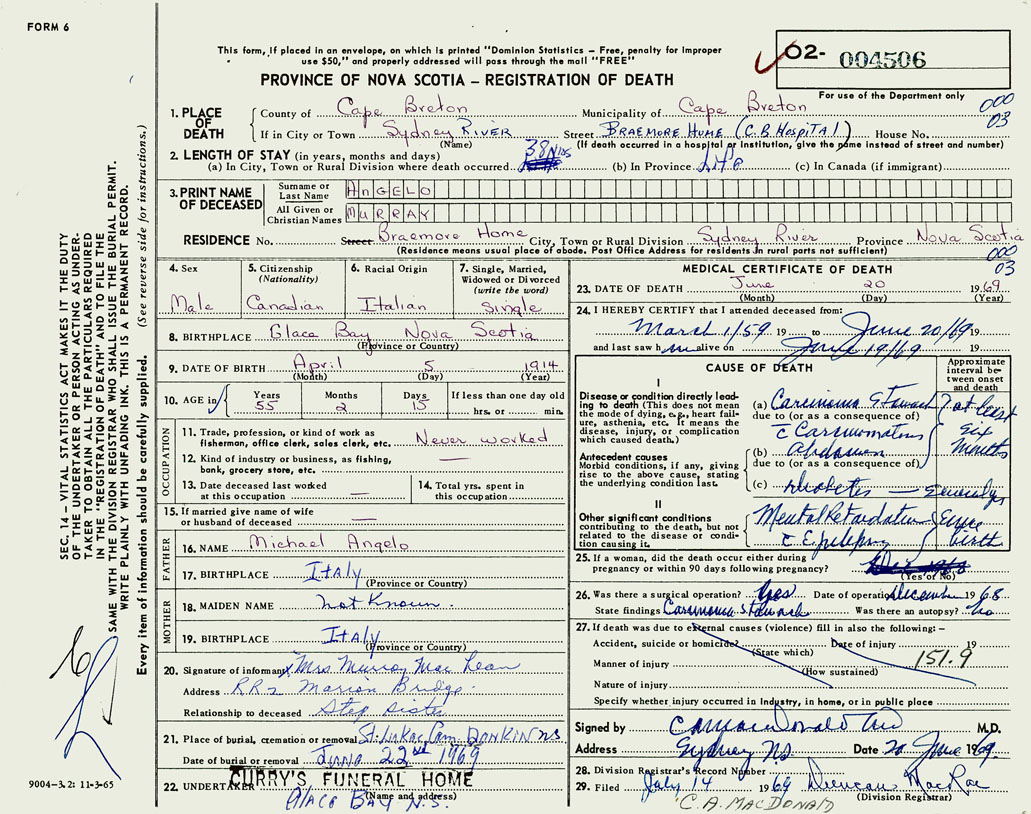 FORM 6
This form, if placed in an envelope, on which is printed "Dominion Statistics – Free, penalty for improper
use $50," and properly addressed will pass through the mail "FREE"
PROVINCE OF NOVA SCOTIA – REGISTRATION OF DEATH
02- 004506
For use of the Department only
000
03
1. PLACE OF DEATH
County of Cape Breton Municipality of Cape Breton
If in City or Town Sydney River Street BRAEMORE HOME (C.B Hospital) House No.
(Name) (If death occurred in a hospital or institution, give the name instead of street and number)
2. LENGTH OF STAY (in years, months and days)
(a) In City, Town or Rural Division where death occurred 38 (b) In Province Life (c) In Canada (if immigrant)
3. PRINT NAME OF DECEASED
Surname or Last Name ANGELO
All Given or Christian Names MURRAY
RESIDENCE No. Street Braemore Home City, Town or Rural Division Sydney River Province Nova Scotia
(Residence means usual place of abode. Post Office Address for residents in rural parts not sufficient)
000
03
4. Sex
Male
5. Citizenship
(Nationality)
Canadian
6. Racial Origin
Italian
7. Single, Married,
Widowed or Divorced
(write the word)
Single
8. BIRTHPLACE Glace Bay Nova Scotia
(Province or Country)
9. DATE OF BIRTH April 5 1914
(Month) (Day) (Year)
10. AGE in
Years Months Days If less than one day old
55 2 15 hrs. or min.
OCCUPATION
11. Trade, profession, or kind of work as
fisherman, office clerk, sales clerk, etc. Never worked
12. Kind of industry or business, as fishing,
bank, grocery store, etc. —
13. Date deceased last worked
at this occupation —
14. Total yrs. spent in
this occupation
15. If married give name of wife
or husband of deceased —
FATHER
16. NAME Michael Angelo
17. BIRTHPLACE Italy
(Province or Country)
MOTHER
18. MAIDEN NAME not Known.
19. BIRTHPLACE Italy
(Province or Country)
20. Signature of informant x Mrs Murray Mac Lean
Address RR2 Marion Bridge.
Relationship to deceased Step sister
21. Place of burial, cremation or removal Cem. DONKIN NS
Date of burial or removal June 22 1969
22. UNDERTAKER CURRY'S FUNERAL HOME
(Name and address)
GLACE BAY N.S.
MEDICAL CERTIFICATE OF DEATH
23. DATE OF DEATH June 20 1969
(Month) (Day) (Year)
24. I HEREBY CERTIFY that I attended deceased from:
March 1/59 19 to June 20/69 19
and last saw him alive on June 19/69 19
CAUSE OF DEATH
Approximate
interval be-
tween onset
and death
I
Disease or condition directly lead-
ing to death (This does not
mean the mode of dying, e.g., heart fail-
ure, asthenia, etc. It means the
disease, injury, or complication
which caused death.)
Antecedent causes
Morbid conditions, if any, giving
rise to the above cause, stating
the underlying condition last.
(a) Carcinoma Stomach ? at least
due to (or as a consequence of)
c̄ Carcinomatous six
(b) Abdomen months
due to (or as a consequence of)
(c) Diabetes —
II
Other significant conditions
contributing to the death, but not
related to the disease or condi-
tion causing it.
Mental Retardation Since
c̄ Epilepsy birth
25. If a woman, did the death occur either during
pregnancy or within 90 days following pregnancy?
(Yes or No)
26. Was there a surgical operation? Yes Date of operation December 1968
State findings Carcinoma Stomach Was there an autopsy? No
27. If death was due to external causes (violence) fill in also the following: –
Accident, suicide or homicide? Date of injury 19
(State which)
Manner of injury 151.9
(How sustained)
Nature of injury
Specify whether injury occurred in industry, in home, or in public place
Signed by M.D.
Address Sydney NS Date 20 June 1969.
28. Division Registrar's Record Number
29. Filed July 14 1969 Duncan MacRae
(Division Registrar)
C.A. MACDONALD
SEC. 14 – VITAL STATISTICS ACT MAKES IT THE DUTY
OF THE UNDERTAKER OR PERSON ACTING AS UNDER-
TAKER TO OBTAIN ALL THE PARTICULARS REQUIRED
IN THE "REGISTRATION OF DEATH" AND TO FILE THE
SAME WITH THE DIVISION REGISTRAR WHO SHALL ISSUE THE BURIAL PERMIT.
WRITE PLAINLY WITH UNFADING INK. THIS IS A PERMANENT RECORD.
Every item of information should be carefully supplied. (See reverse side for instructions.)
9004-3.2: 11-3-65